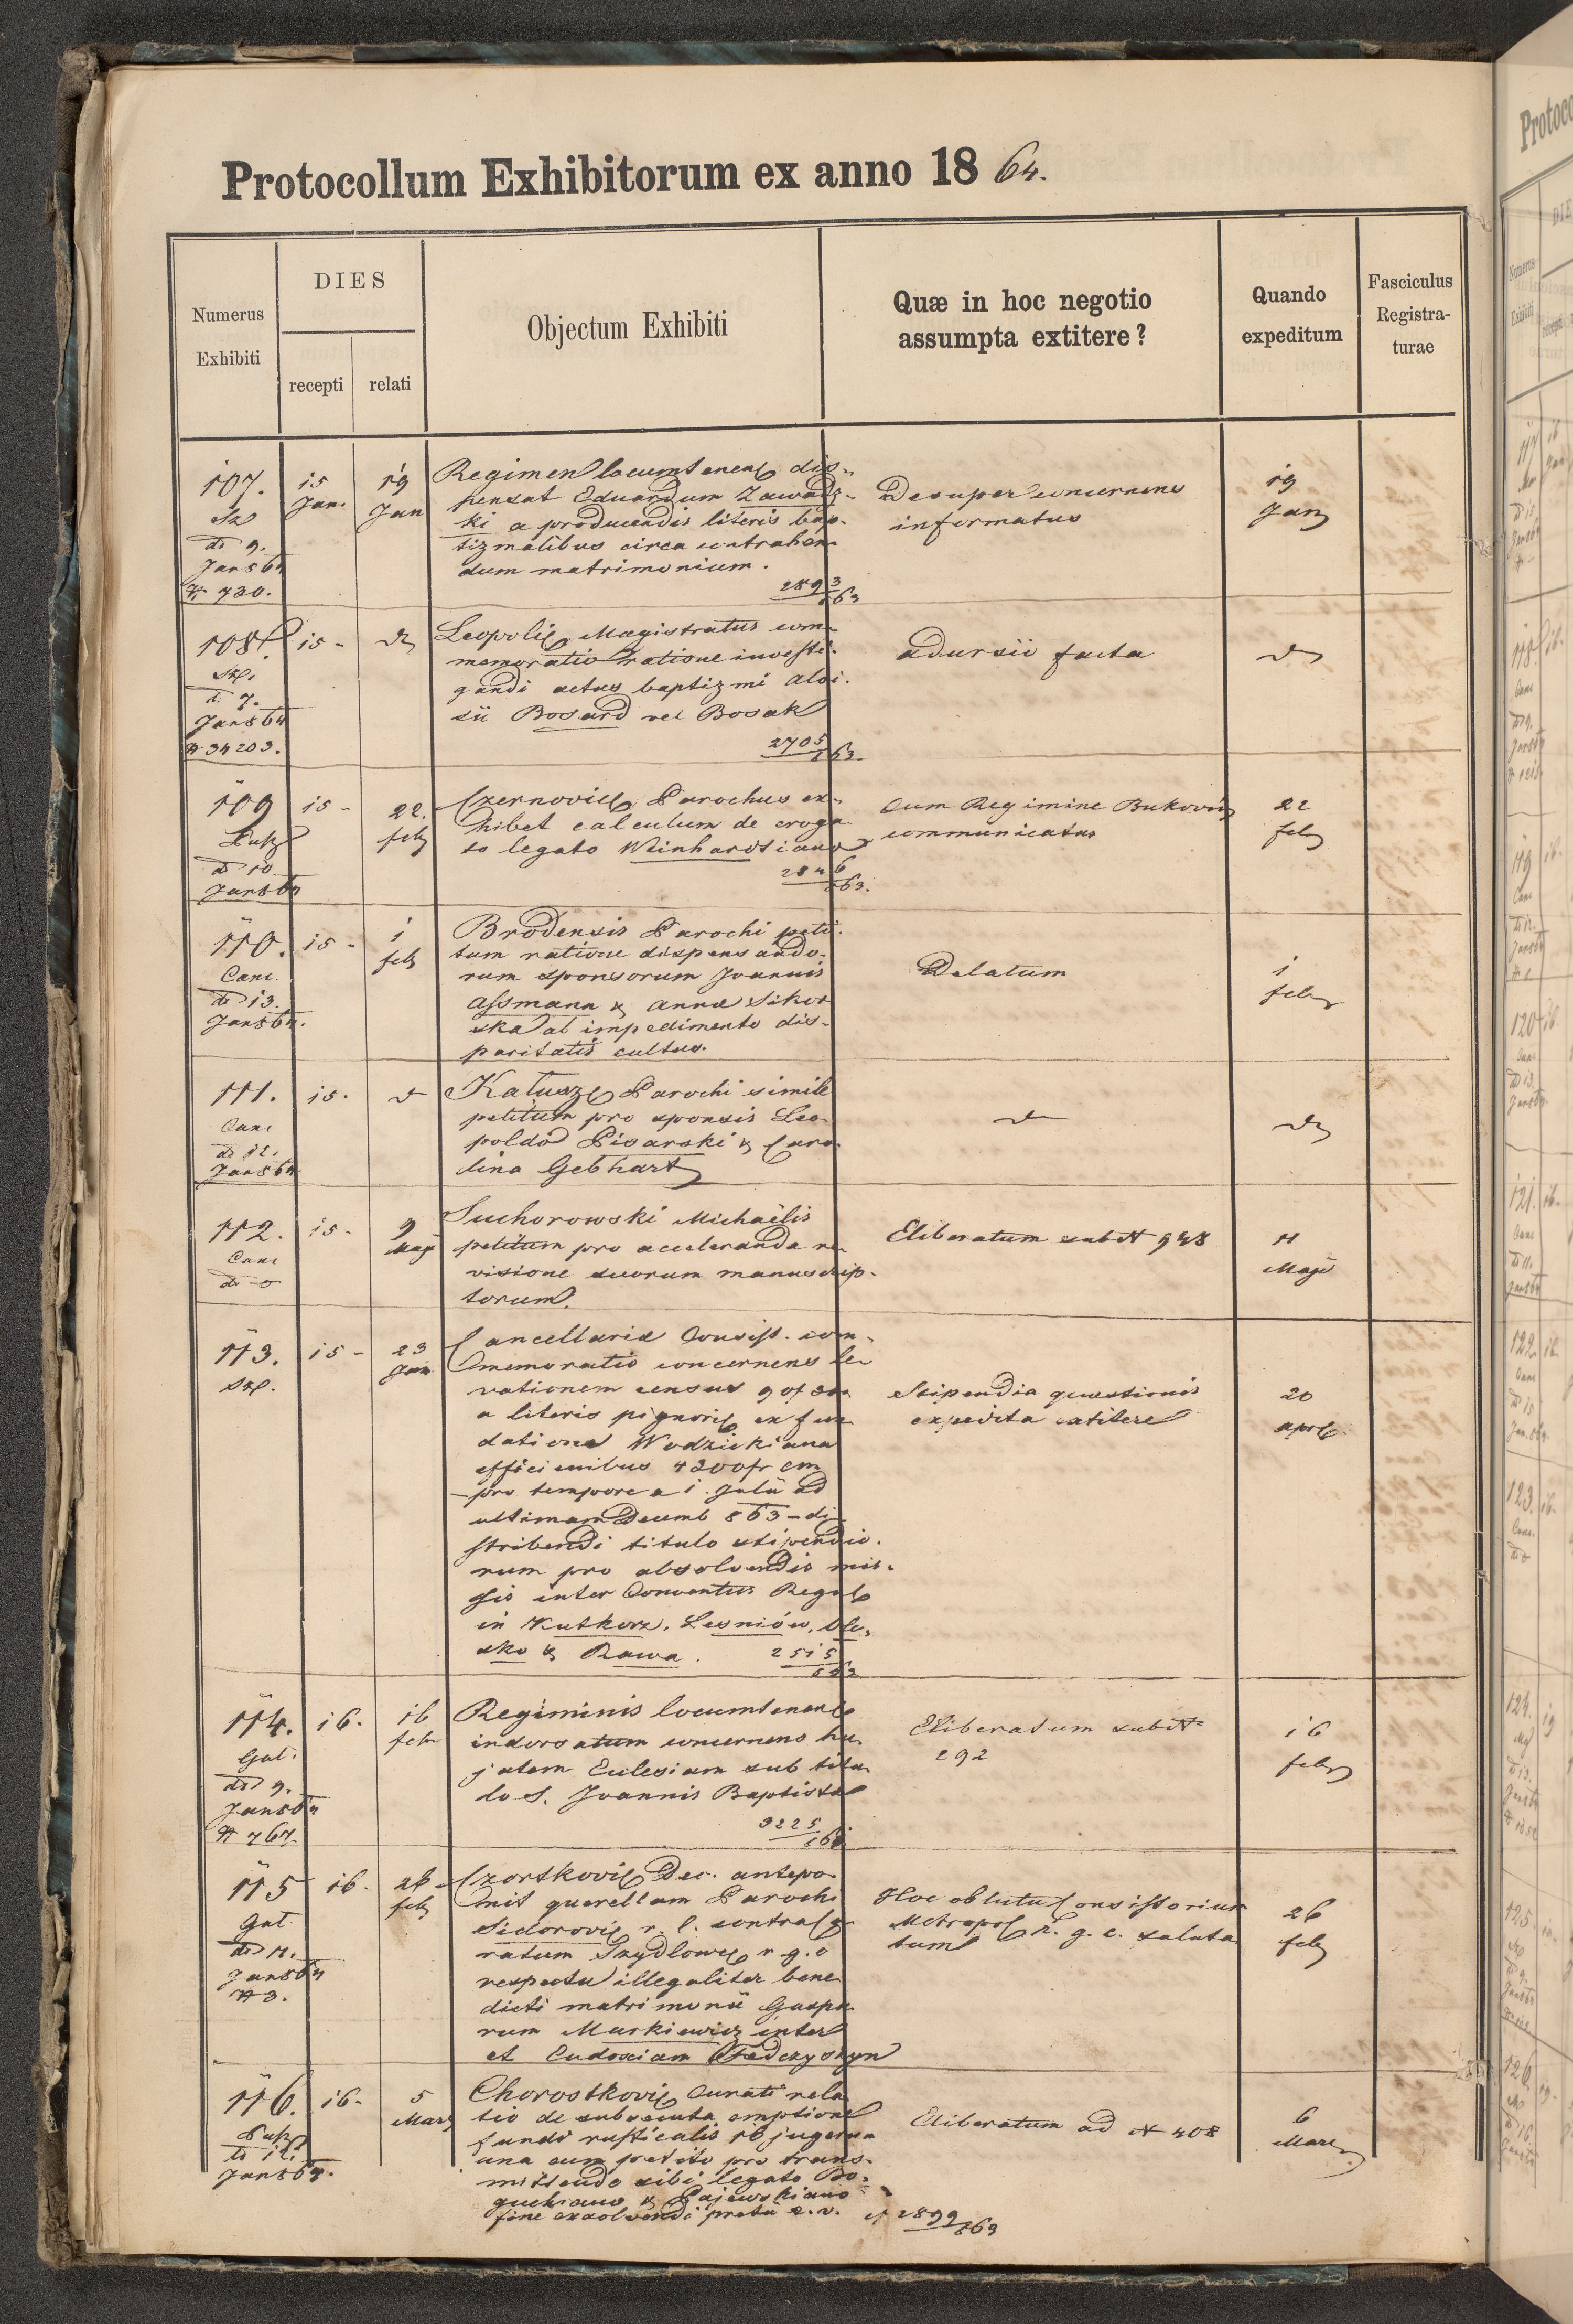 Protocollum Exhibitorum ex anno 18 64.
Numerus Exhibiti
DIES
recepti
relati
Objectum Exhibiti
Quæ in hoc negotio assumpta extitere?
Quando expeditum
Fasciculus Registra-turae
107.
dd 9.
Jan 864
N 730.
15 Jan.
19 Jan
Regimen locumtenens dis-
pensat Eduardum Zawadz-
ki a producendis literis bap-
tizmalibus circa contrahen-
dum matrimonium.
2893/863
Desuper concernens
informatus
19
Jan
108.
d 7.
Jan 864
N 34203.
15 -
Leopoli Magistratus com-
memoratio ratione investi-
gandi actus baptizmi Aloi-
sii Bosard vel Bosak
2705/863.
adursio facta
109
dd 10
Jan 864
15 -
22.
feb
Czernovic Parochus ex-
hibet calculum de eroga-
to legato Weinhardtiano
2846/863.
Cum Regimine Bukovin
communicatus
22
feb
110.
Canc
dd 13.
Jan 864.
15 -
1
feb
Brodensis Parochi peti-
tum ratione dispensando-
rum sponsorum Joannis
Assmann & Annæ Sikor
ska ab impedimento dis-
paritatis cultus.
Delatum
1
feb
111.
Canc
dd 12.
Jan 864
15.
Kałusz Parochi simile
petitum pro sponsis Leo-
poldo Pisarski & Caro-
lina Gebhart
112.
Canc
dd -o
15 -
9
Maji
Suchorowski Michaëlis
petitum pro acceleranda re-
visione suorum manuscrip-
torum.
Eliberatum sub N 948
11
Maji
113.
15 -
23
Jan
Cancellariæ Consist. com-
memoratio concernens le-
vationem census
a literis pignoris ex fun-
datione Wodzickiana
efficienibus 4200 fr cm
pro tempore a 1. Julii ad
ultimam Decemb 863 - di-
stribendi titulo stipendio-
rum pro absolvendis mis-
sis inter Conventus Regul
in Kutkorz, Lesniów, Ole-
sko & Rawa. 2515/863
Stipendia quæstionis
expedita extitere
20
apr
114.
Gal.
dd 9.
Jan 864
N 767.
16.
16
feb
Regiminis locumtenent
indorsatum concernens hu-
jatem Ecclesiam sub titu-
lo S. Joannis Baptistæ
3225/863
Eliberatum sub N
292
16
feb
115
Gal
dd 11.
Jan 864
N 3.
16.
26
feb
Czortkovi Dec. antepo-
nit querellam Parochi
Sidorovi r. l. contra
ratum Szydlowc r. g. c
respectu illegaliter bene-
dicti matrimonii Gaspa-
rum Markiewicz inter
et Eudoxiam Fedczyszyn
Hoc oblutu Consistorium
Metropol R. g. c. saluta-
tum
26
feb
116.
d 12.
Jan 864.
16.
5
Mar
Chorostkovi Curati rela-
tio de subsecuta emptione
fundi rusticalis 16 jugerum
una cum petito pro trans-
mittendo sibi legato Bo-
guckiano & Gajewskiano
fine exsolvendi pretii e. v. et 2899/863
Eliberatum ad N 408
6
Mar